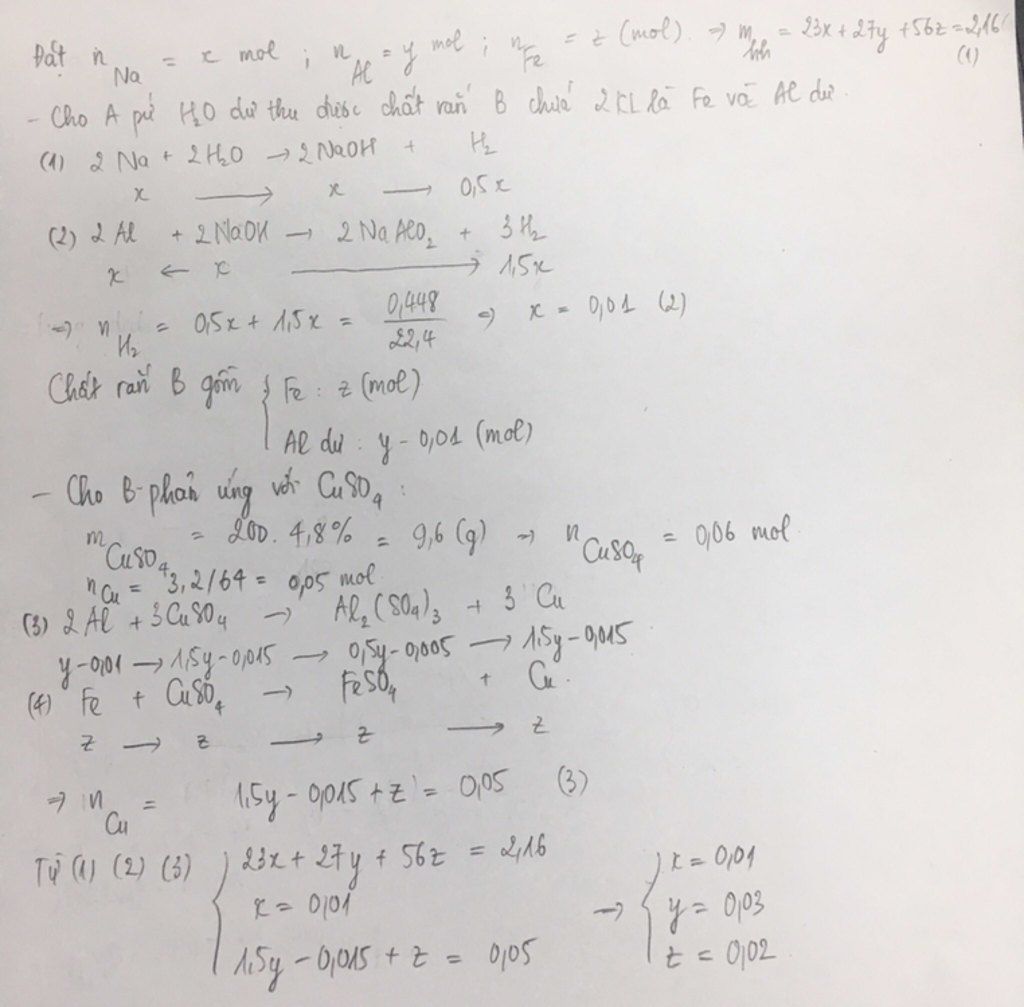 Đặt n_Na = x mol ; n_Al = y mol ; n_Fe = z (mol). ⇒ m_hh = 23x + 27y + 56z = 2,16 (1)
- Cho A pứ H₂O dư thu được chất rắn B chứa 2 KL là Fe và Al dư.
(1) 2 Na + 2H₂O → 2 NaOH + H₂
x → x → 0,5x
(2) 2 Al + 2 NaOH → 2 NaAlO₂ + 3 H₂
x ← x → 1,5x
⇒ n_H₂ = 0,5x + 1,5x = 0,448/22,4 ⇒ x = 0,01 (2)
Chất rắn B gồm { Fe : z (mol)
Al dư : y - 0,01 (mol)
- Cho B phản ứng với CuSO₄ :
m_CuSO₄ = 200. 4,8% = 9,6 (g) → n_CuSO₄ = 0,06 mol
n_Cu = 3,2/64 = 0,05 mol
(3) 2 Al + 3 CuSO₄ → Al₂(SO₄)₃ + 3 Cu
y-0,01 → 1,5y-0,015 → 0,5y-0,005 → 1,5y-0,015
(4) Fe + CuSO₄ → FeSO₄ + Cu.
z → z → z → z
⇒ n_Cu = 1,5y - 0,015 + z = 0,05 (3)
Từ (1) (2) (3) { 23x + 27y + 56z = 2,16
x = 0,01
1,5y - 0,015 + z = 0,05
→ { x = 0,01
y = 0,03
z = 0,02